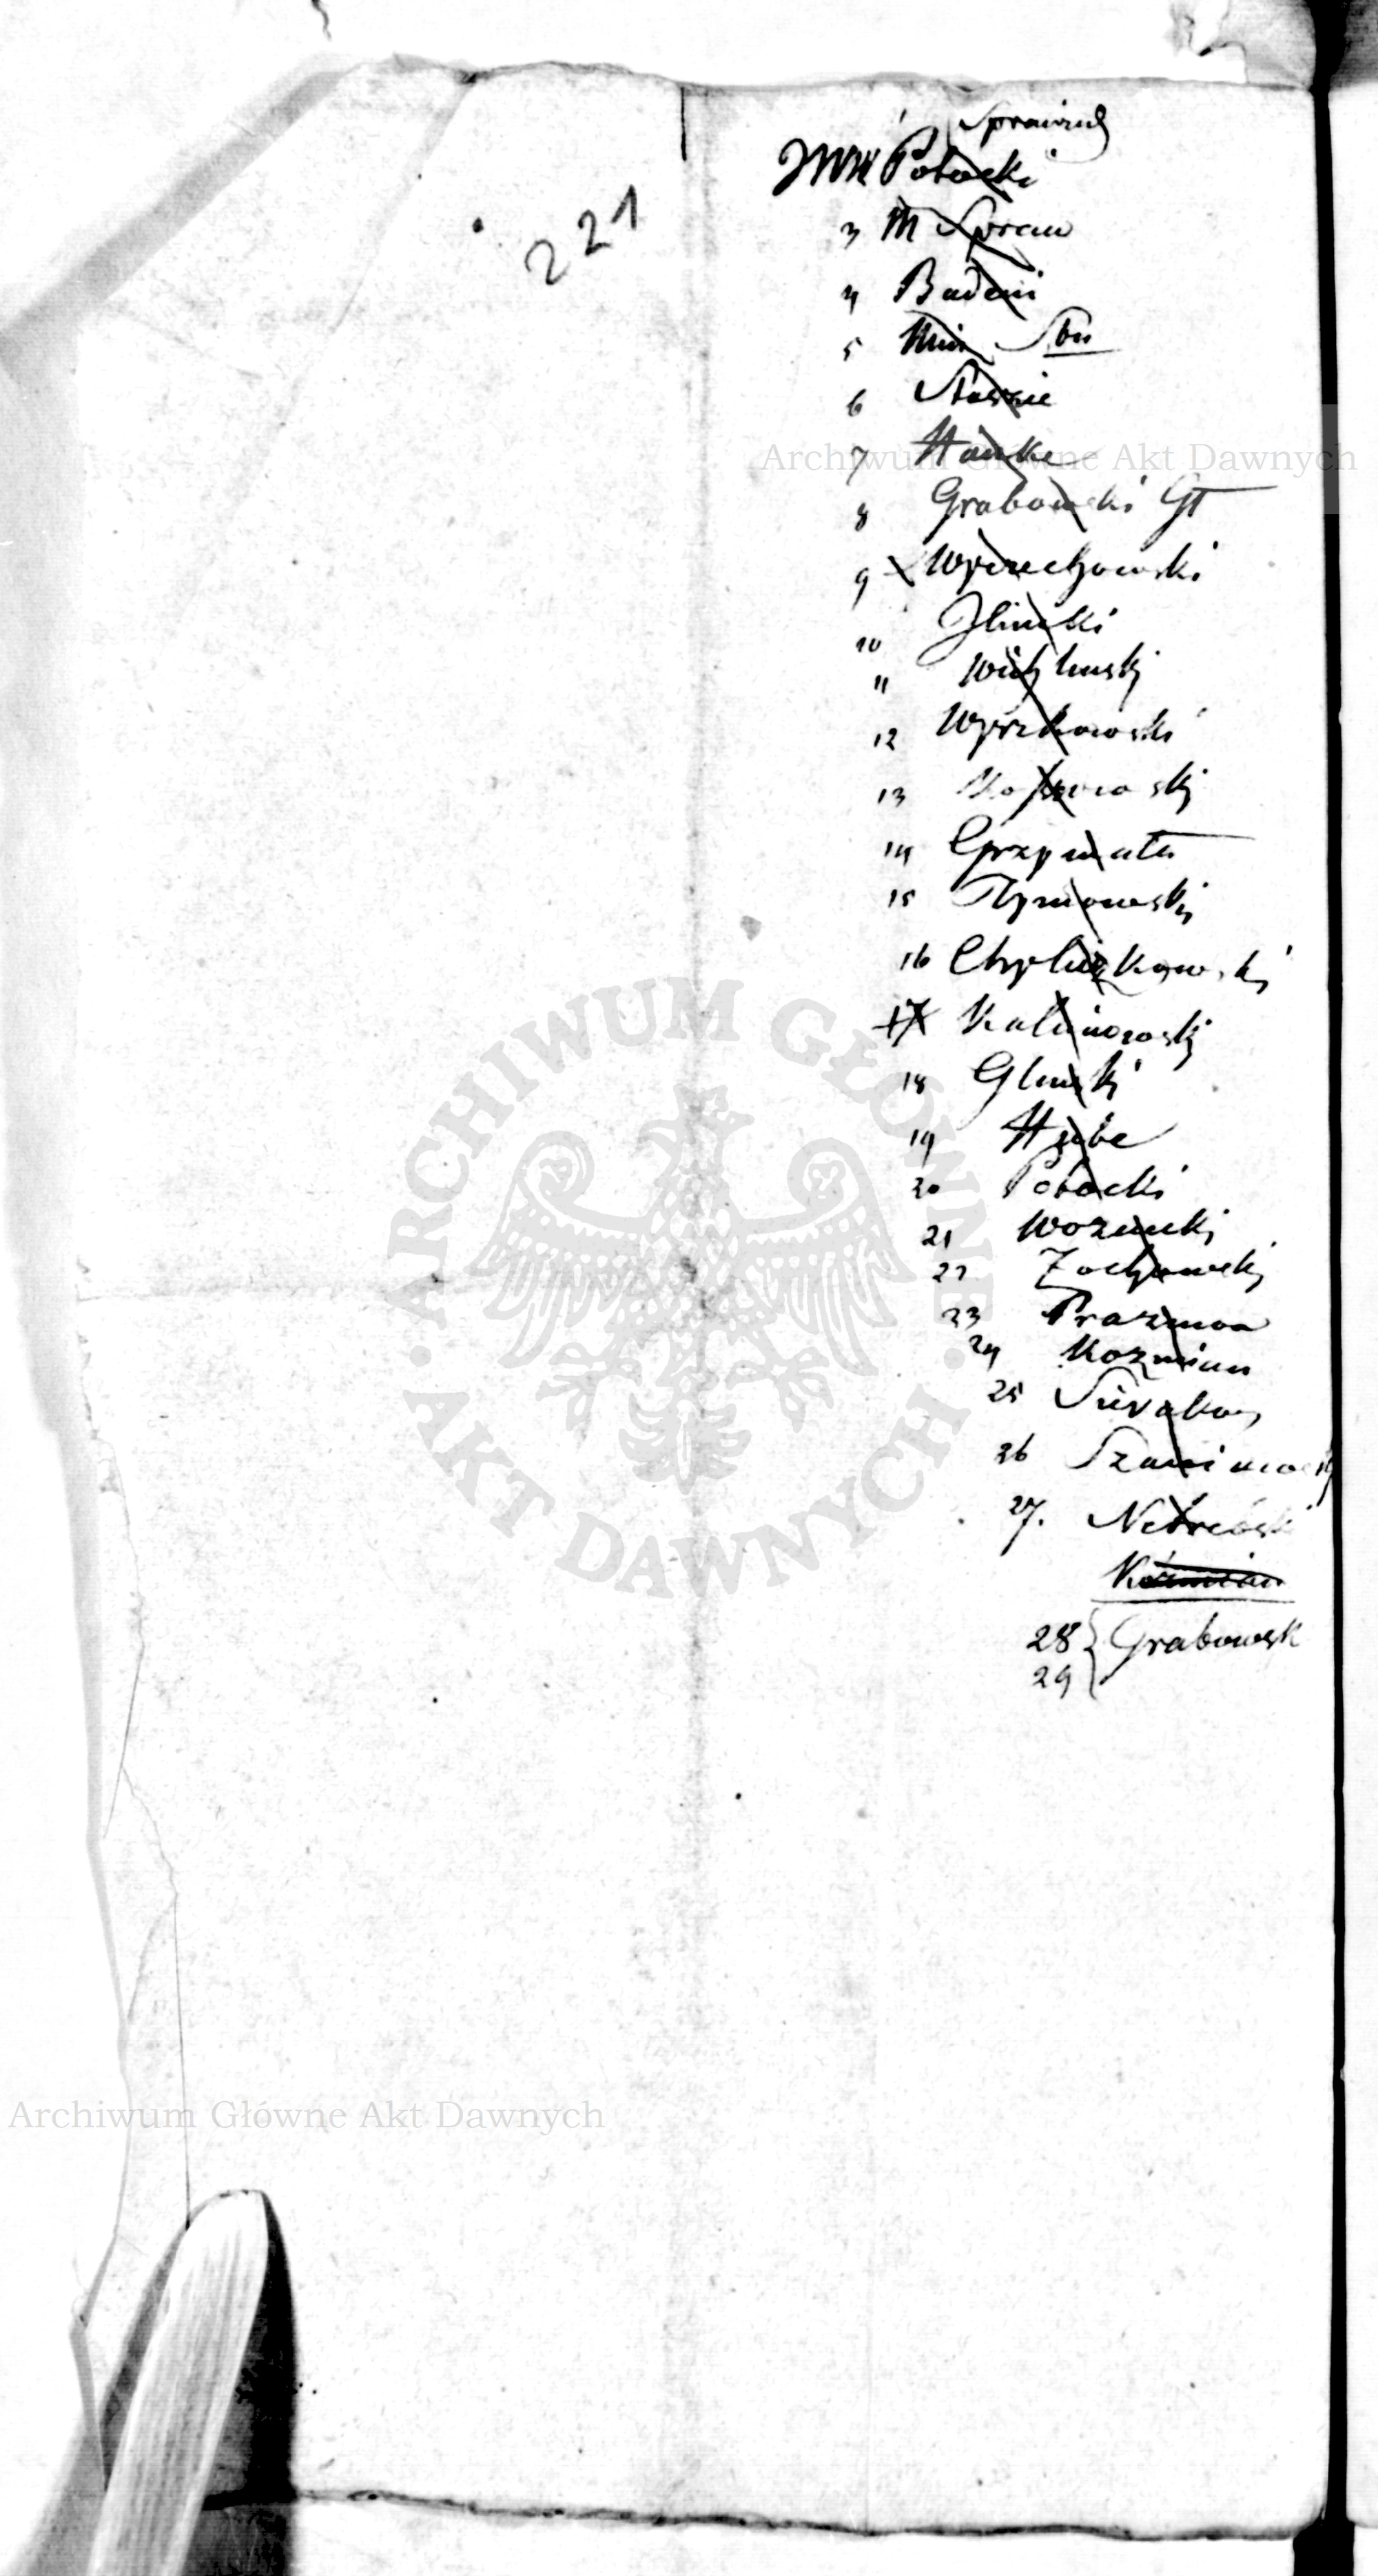 221
Potocki
3 M Spraw
4 Badeni
5 Min Stu
6 Staszic
7 Hauke
8 Grabowski Gł
9 Wyczechowski
10 Iliński
11 Wichliński
12 Wyrzkowski
13
14 Grzymała
15 Tymowski
16 Chyliczkowski
17 Kalinowski
18 Gliński
19 Hube
20 Potocki
21 Woznicki
22 Zochowski
23 Prazmow
24 Kozmian
25
26 Szaniawski
27.
Kozmian
28 Grabowsk
29
ARCHIWUM GŁÓWNE
AKT DAWNYCH
Archiwum Główne Akt Dawnych
Archiwum Główne Akt Dawnych